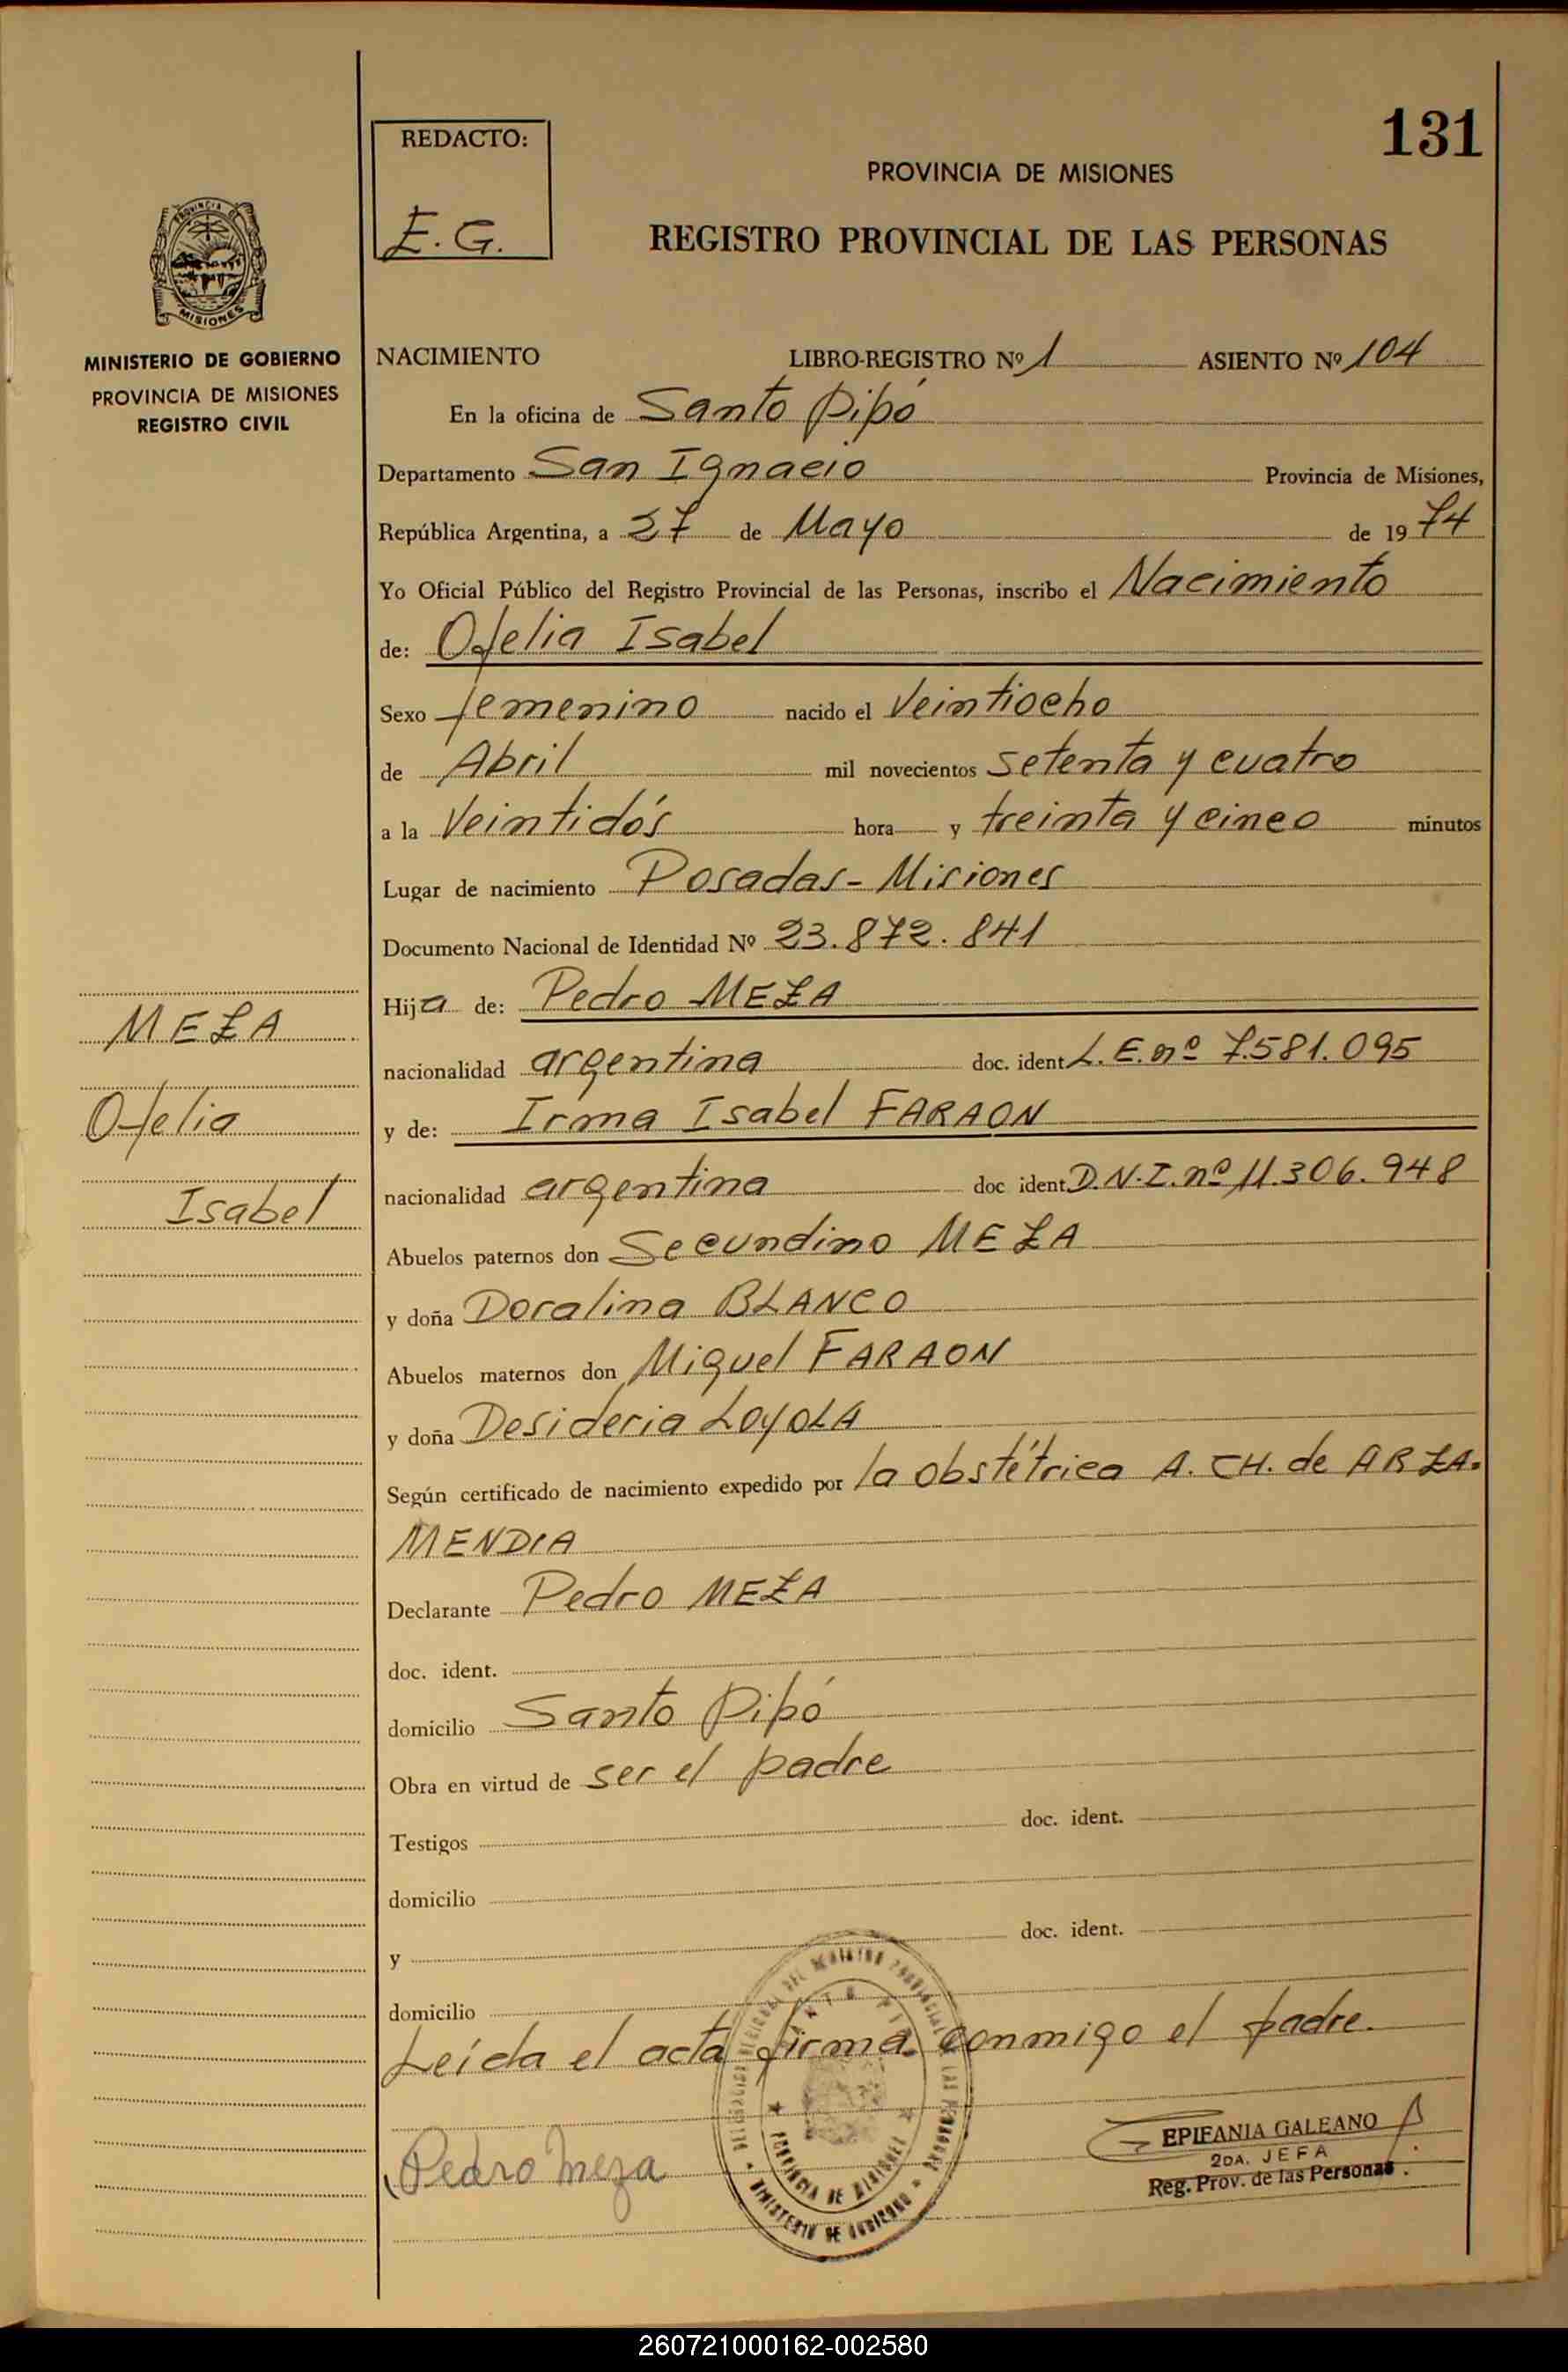 131
REDACTO:
E. G.
PROVINCIA DE MISIONES
REGISTRO PROVINCIAL DE LAS PERSONAS
PROVINCIA DE
MISIONES
MINISTERIO DE GOBIERNO
PROVINCIA DE MISIONES
REGISTRO CIVIL
NACIMIENTO LIBRO-REGISTRO Nº 1 ASIENTO Nº 104
En la oficina de Santo Pipó
Departamento San Ignacio Provincia de Misiones,
República Argentina, a 27 de Mayo de 1974
Yo Oficial Público del Registro Provincial de las Personas, inscribo el Nacimiento
de: Ofelia Isabel
Sexo femenino nacido el Veintiocho
de Abril mil novecientos setenta y cuatro
a la Veintidós hora y treinta y cinco minutos
Lugar de nacimiento Posadas - Misiones
Documento Nacional de Identidad Nº 23.872.841
Hija de: Pedro MEZA
nacionalidad argentina doc. ident L. E. nº 7.581.095
y de: Irma Isabel FARAON
nacionalidad argentina doc ident. D.N.I. nº 11.306.948
Abuelos paternos don Secundino MEZA
y doña Doralina BLANCO
Abuelos maternos don Miguel FARAON
y doña Desideria LOYOLA
Según certificado de nacimiento expedido por la obstétrica A. CH. de ARZA-
MENDIA
Declarante Pedro MEZA
doc. ident.
domicilio Santo Pipó
Obra en virtud de ser el padre
Testigos doc. ident.
domicilio
y doc. ident.
domicilio
Leída el acta firma conmigo el padre.
Pedro Meza
EPIFANIA GALEANO
2DA. JEFA
Reg. Prov. de las Personas
PROVINCIA DE MISIONES
MINISTERIO DE GOBIERNO
MEZA
Ofelia
Isabel
260721000162-002580